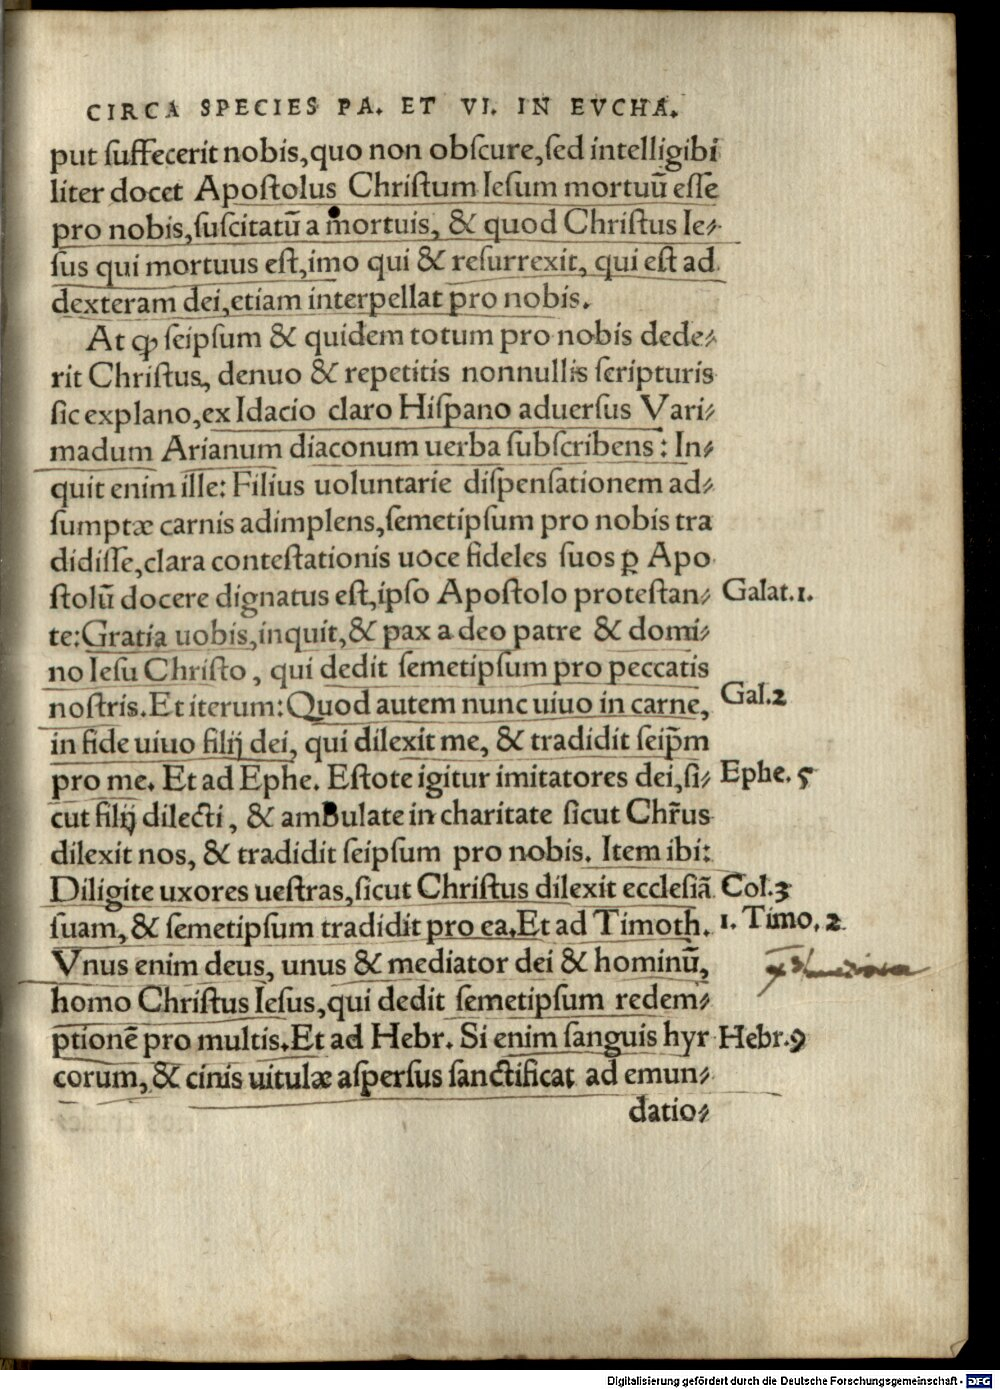 CIRCA SPECIES PA. ET VI. IN EVCHA.
put ſuffecerit nobis, quo non obſcure, ſed intelligibi
liter docet Apoſtolus Chriſtum Ieſum mortuū eſſe
pro nobis, ſuſcitatū a mortuis, & quod Chriſtus Ie⸗
ſus qui mortuus eſt, imo qui & reſurrexit, qui eſt ad
dexteram dei, etiam interpellat pro nobis.
At ꝙ ſeipſum & quidem totum pro nobis dede⸗
rit Chriſtus, denuo & repetitis nonnullis ſcripturis
ſic explano, ex Idacio claro Hiſpano aduerſus Vari⸗
madum Arianum diaconum uerba ſubſcribens: In⸗
quit enim ille: Filius uoluntarie diſpenſationem ad⸗
ſumptæ carnis adimplens, ſemetipſum pro nobis tra
didiſſe, clara conteſtationis uoce fideles ſuos ꝑ Apo
ſtolū docere dignatus eſt, ipſo Apoſtolo proteſtan⸗ Galat. 1.
te: Gratia uobis, inquit, & pax a deo patre & domi⸗
no Ieſu Chriſto, qui dedit ſemetipſum pro peccatis
noſtris. Et iterum: Quod autem nunc uiuo in carne, Gal. 2
in fide uiuo filij dei, qui dilexit me, & tradidit ſeip̄m
pro me. Et ad Ephe. Eſtote igitur imitatores dei, ſi⸗ Ephe. 5
cut filij dilecti, & ambulate in charitate ſicut Chr̄us
dilexit nos, & tradidit ſeipſum pro nobis. Item ibi:
Diligite uxores ueſtras, ſicut Chriſtus dilexit eccleſiā Col. 3
ſuam, & ſemetipſum tradidit pro ea. Et ad Timoth. 1. Timo. 2
Vnus enim deus, unus & mediator dei & hominū,
homo Chriſtus Ieſus, qui dedit ſemetipſum redem⸗
ptionē pro multis. Et ad Hebr. Si enim ſanguis hyr Hebr. 9
corum, & cinis uitulæ aſperſus ſanctificat ad emun⸗
datio⸗
Digitalisierung gefördert durch die Deutsche Forschungsgemeinschaft - DFG